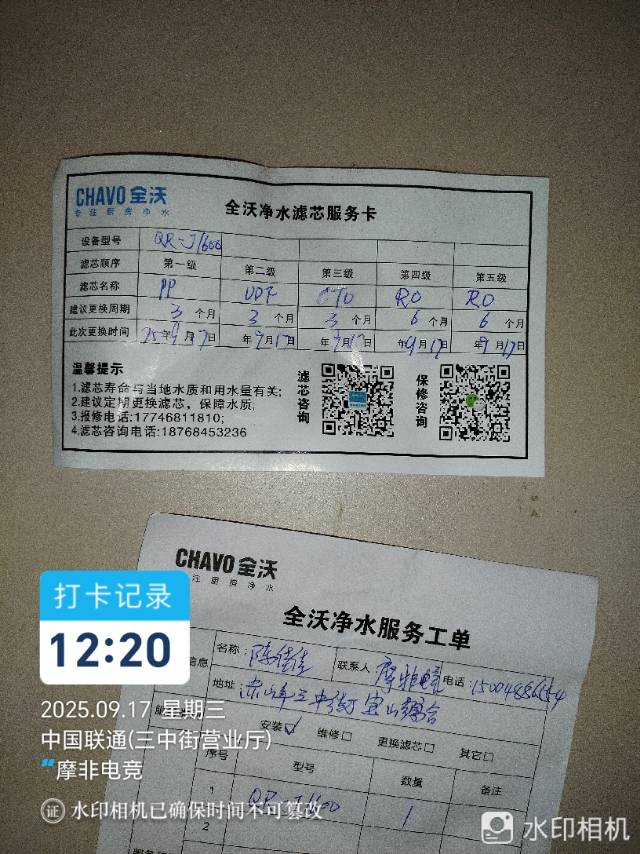 CHAVO 全沃
专注厨房净水
全沃净水滤芯服务卡
设备型号 QR-J1600
滤芯顺序 第一级 第二级 第三级 第四级 第五级
滤芯名称 PP UDF CTO RO RO
建议更换周期 3个月 3个月 3个月 6个月 6个月
此次更换时间 25年9月17日 年9月17日 年9月17日 年9月17日 年9月17日
温馨提示
1.滤芯寿命与当地水质和用水量有关;
2.建议定期更换滤芯，保障水质;
3.报修电话:17746811810;
4.滤芯咨询电话:18768453236
滤芯咨询
保修咨询
CHAVO 全沃
注厨房净水
全沃净水服务工单
信息 名称: 陈佳佳 联系人 摩非电竞 电话: 15004886554
地址: 赤峰三中街宝山
安装☑ 维修□ 更换滤芯□ 其它□
序号 型号 数量 备注
1 QR-J1600 1
2
打卡记录
12:20
2025.09.17 星期三
中国联通(三中街营业厅)
摩非电竞
证 水印相机已确保时间不可篡改
水印相机